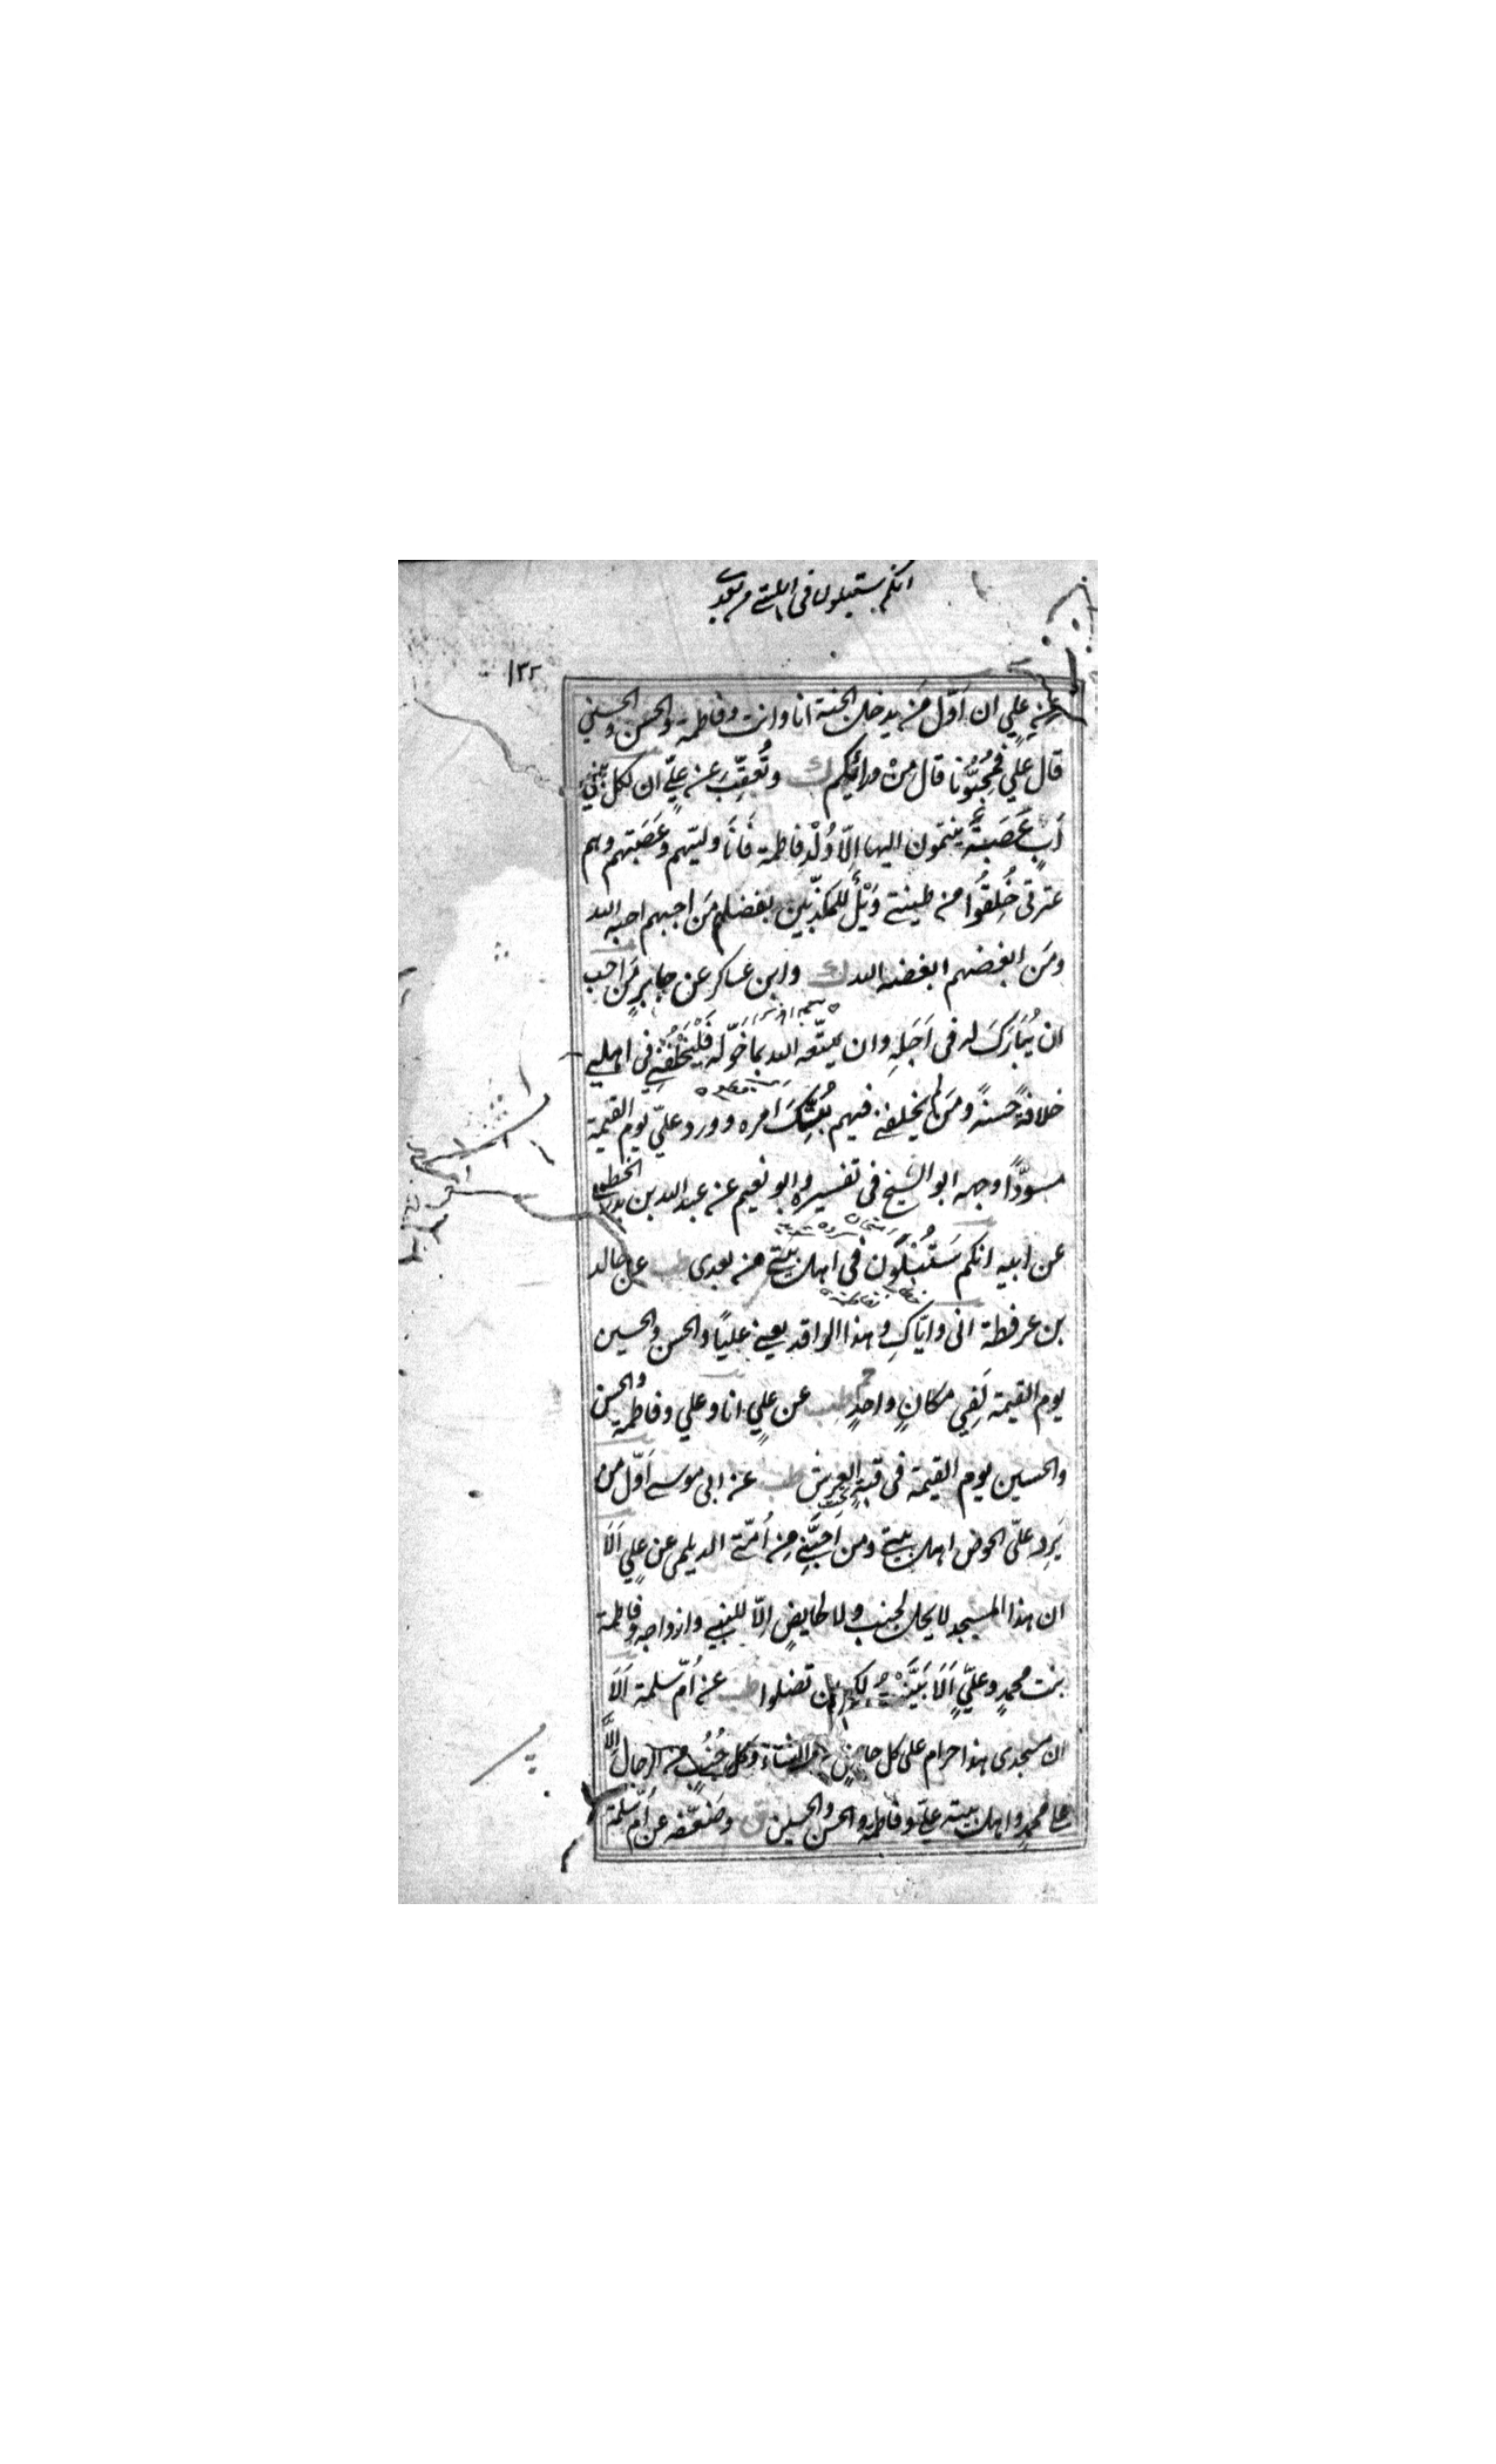 انكم ستبتلون فى اهلبيتى من بعدى
١٣٢
عن علي ان اَوّل مَن يدخل الجنة انا وانت وفاطمة والحسن والحسين
قال علي فمُحِبُّونا قال مِنْ ورائِكم ك وتُعقِّبَ عن عليّ ان لكل بنى
اَبٍ عَصَبةً ينتمون اليها اِلّا وُلْدِ فاطمة فَاَنَا وليّهم وعَصَبتهم وهم
عترتى خُلِقُوا من طينتى وَيْلٌ للمكذّبين بفضلهم مَن احبهم احبه الله
ومَن ابغضهم ابغضه الله ك وابن عساكر عن جابرٍ مَن احب
ان يُبَارَكَ له فى اَجَلِهِ وان يمتّعه الله بما خَوّله فَلْيَخْلُفْنِى فى اهلى
خلافةً حسنةً ومَن لم يخلفنى فيهم بُتِكَ امره وورد علىّ يوم القيمة
مسودًّا وجهه ابو الشيخ فى تفسيره وابو نعيم عن عبد الله بن بدر الخطمى
عن ابيه انكم سَتُبْتَلَون فى اهل بيتى من بعدى طب عن خالد
بن عرفطة انى وايّاكِ وهذا الراقد يعنى عليًا والحسن والحسين
يوم القيمة لَفِى مكانٍ واحدٍ حم طب عن علىٍ انا وعلي وفاطمة والحسن
والحسين يوم القيمة فى قبةٍ تحت العرش طب عن ابى موسى اَوّل من
يَرِد علىّ الحوض اهل بيتى ومن اَحَبَّنِى مِن اُمّتى الديلمى عن علىٍ اَلَا
ان هذا المسجد لا يحل لجنبٍ ولا لحايضٍ اِلّا للنبى وازواجه وفاطمة
بنت محمدٍ وعلىٍّ اَلَا بَيَّنْتُ لكم ان تضلوا طب عن اُمّ سلمة اَلَا
ان مسجدى هذا حرام على كل حايضٍ من النساء وكل جُنُبٍ من الرجال اِلَّا
على محمدٍ واهل بيته علىّ وفاطمة والحسن والحسين ق وضعّفه عن اُمّ سلمة